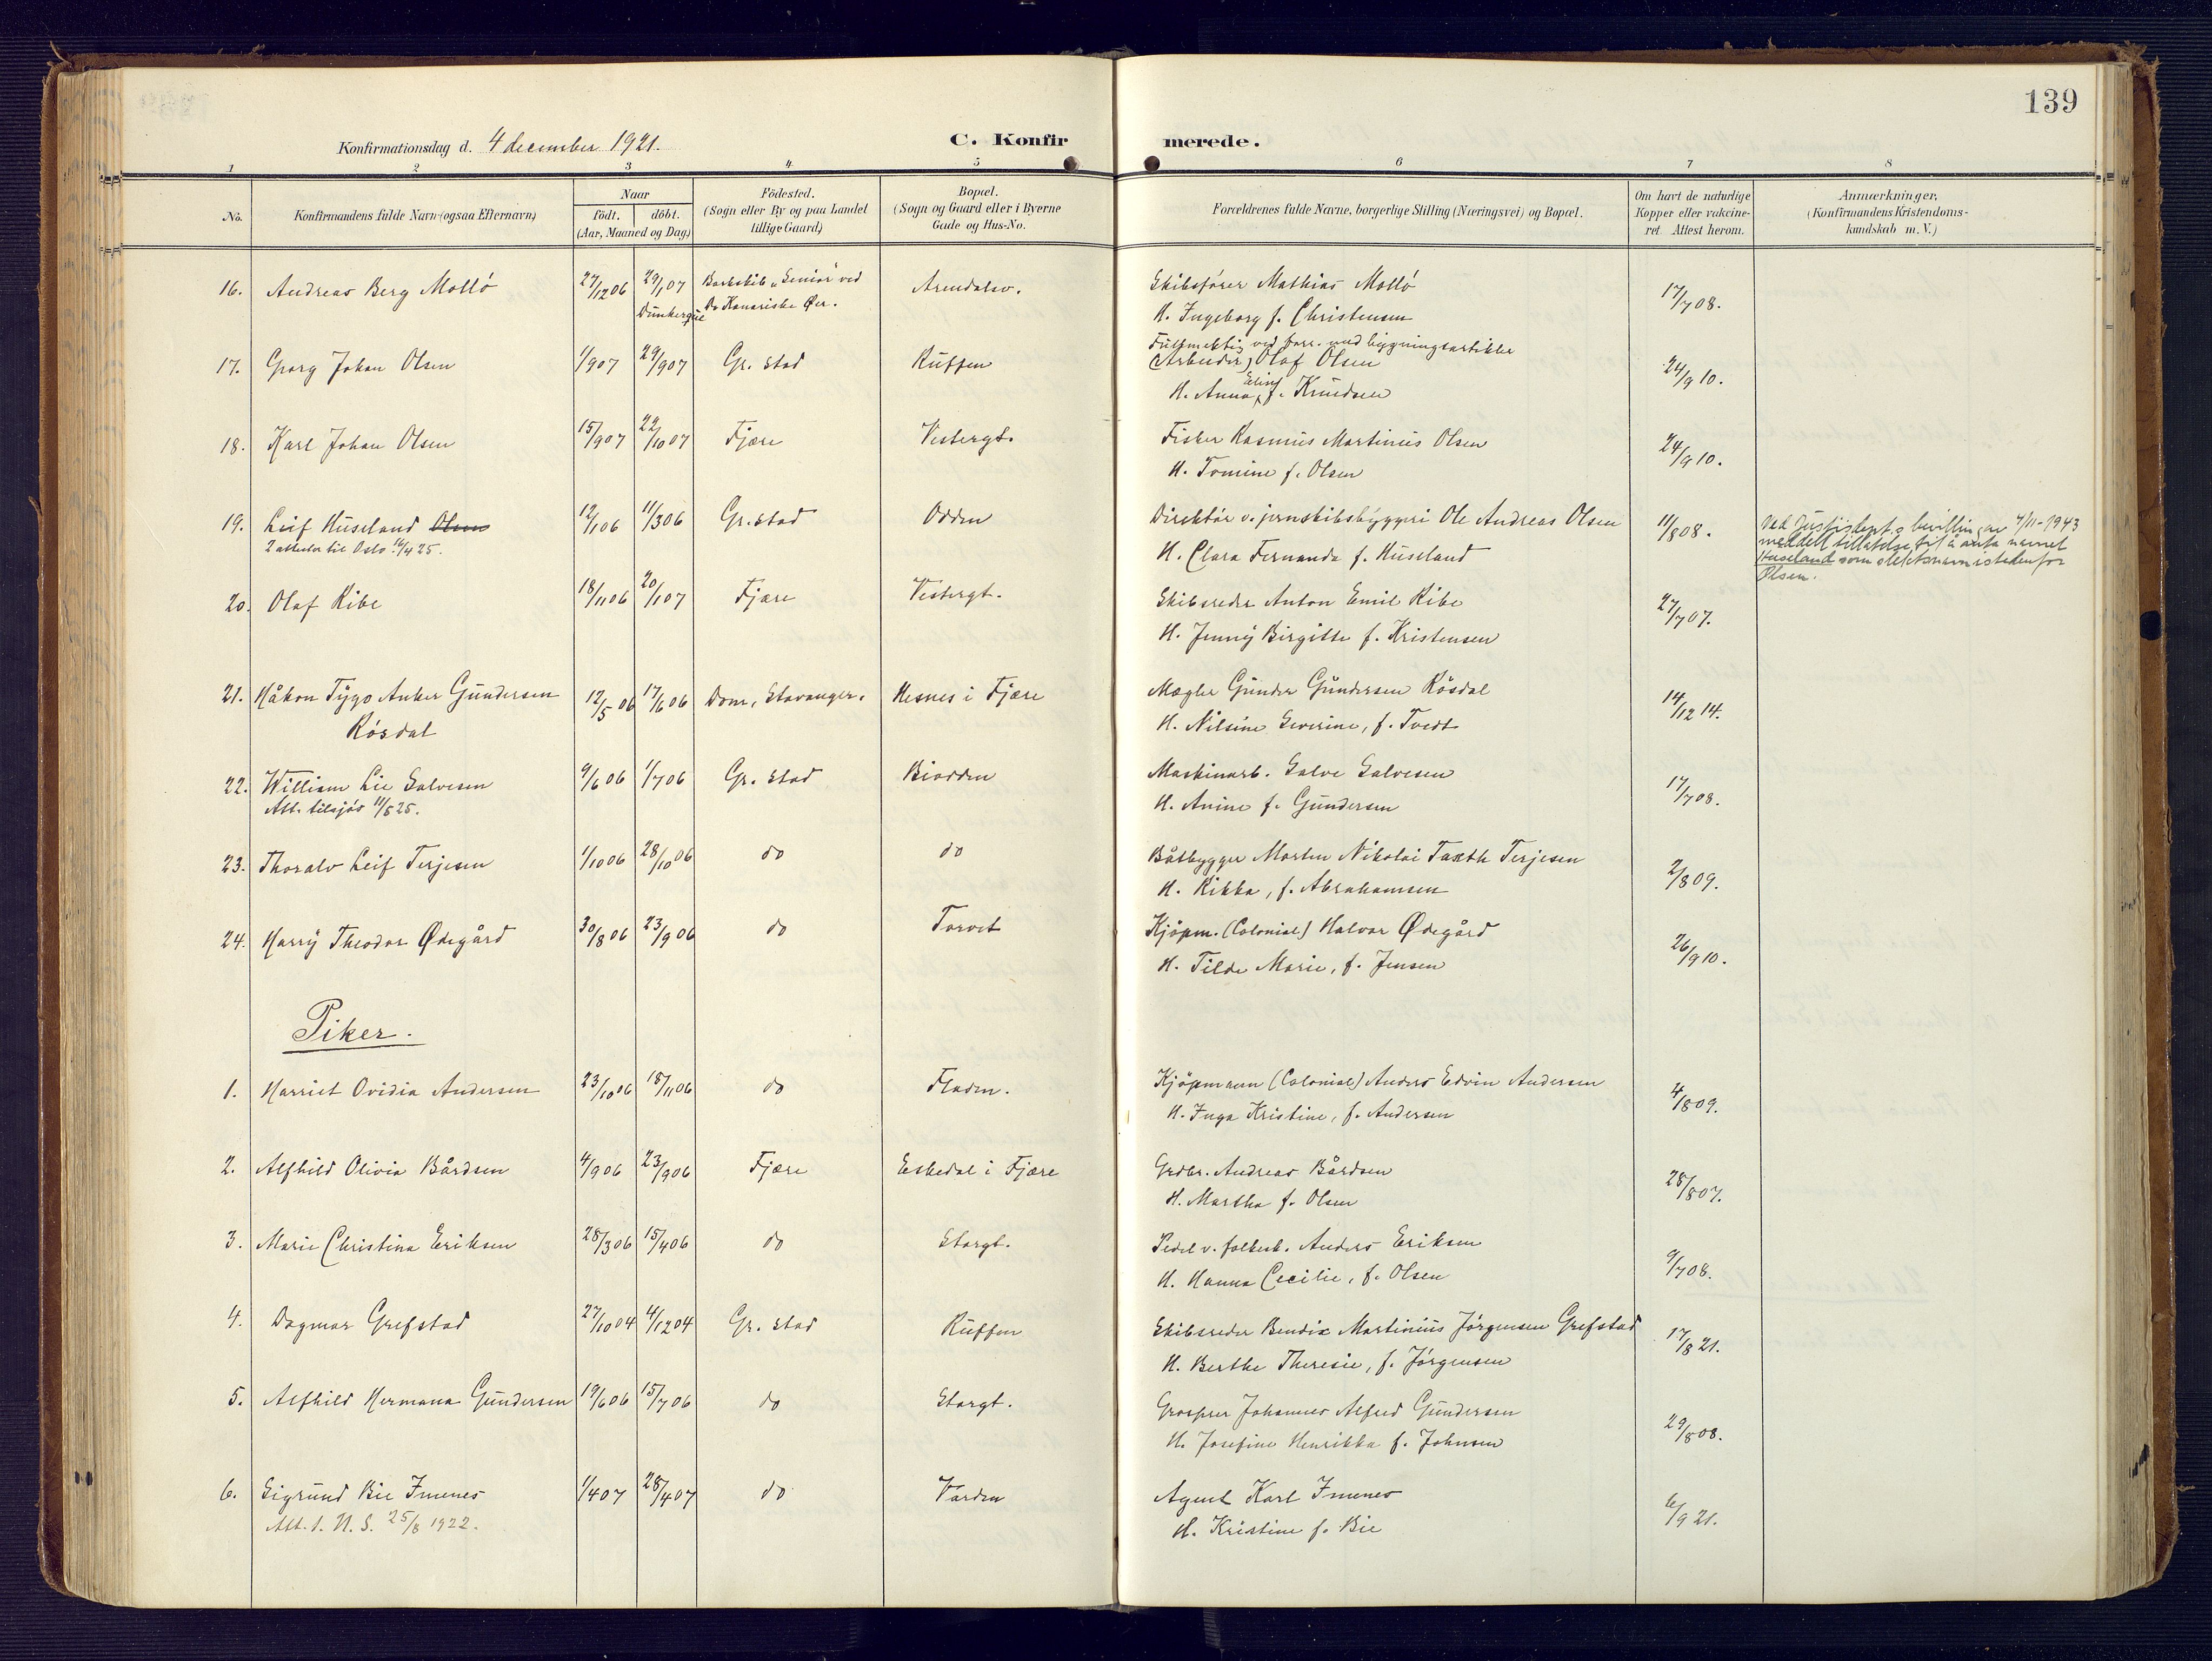 139
Konfirmationsdag d. 4 december 1921.
C. Konfirmerede.
1 2 3 4 5 6 7 8
No.
Konfirmandens fulde Navn (ogsaa Efternavn)
Naar
födt. döbt.
(Aar, Maaned og Dag)
Födested.
(Sogn eller By og paa Landet
tillige Gaard)
Bopæl.
(Sogn og Gaard eller i Byerne
Gade og Hus-No.
Forældrenes fulde Navne, borgerlige Stilling (Næringsvei) og Bopæl.
Om havt de naturlige
Kopper eller vakcine-
ret. Attest herom.
Anmærkninger,
(Konfirmandens Kristendoms-
kundskab m. V.)
16. Andreas Berg Mollö 27/12 06 29/1 07 Barkskib "Senior" ved Arendalsv. Skibsförer Mathias Mollö 17/7 08.
Dunkerque De Kanariske Øer.
H. Ingeborg f. Christensen
Fullmektig ved forr. med bygningsartikler
17. Georg Johan Olsen 1/9 07 29/9 07 Gr.stad Ruffen (Arbeider) Olaf Olsen 24/9 10.
H. Anna Elise f. Knudsen
18. Karl Johan Olsen 15/9 07 22/10 07 Fjære Vestergt. Fisker Rasmus Martinius Olsen 24/9 10.
H. Tomine f. Olsen
19. Leif Huseland Olsen 12/1 06 11/3 06 Gr.stad Odden Direktör v. jernskibsbyggeri Ole Andreas Olsen 11/8 08.
2 attester til Oslo 16/4 25.
H. Clara Fernanda f. Huseland
Ved Justisdept.s bevilling av 4/11-1943
meddelt tillatelse til å anta navnet
Huseland som slektsnavn istedenfor
Olsen.
20. Olaf Ribe 18/11 06 20/1 07 Fjære Vestergt. Skibsreder Anton Emil Ribe 27/7 07.
H. Jenny Birgitte f. Kristensen
21. Håkon Tygo Anker Gundersen 12/5 06 17/6 06 Dom, Stavanger. Hesnes i Fjære Mægler Gunder Gundersen Rösdal 14/12 14.
Rösdal
H. Nilsine Severine, f. Tvedt
22. William Lie Salvesen 9/6 06 1/7 06 Gr.stad Biodden Maskinarb. Salve Salvesen 17/7 08.
Att. tilsjös 11/5 25.
H. Anine f. Gundersen
23. Thoralv Leif Terjesen 1/10 06 28/10 06 do do Båtbygger Morten Nikolai Taxth Terjesen 2/8 09.
H. Rikka, f. Abrahamsen
24. Harry Theodor Ødegård 30/8 06 23/9 06 do Torvet Kjöpm. (Colonial) Halvor Ødegård 26/9 10.
H. Tilda Marie, f. Jensen
Piker.
1. Harriet Ovidia Andersen 23/10 06 18/11 06 do Fladen. Kjöpmann (Colonial) Anders Edvin Andersen 4/8 09.
H. Inga Kristine, f. Andersen
2. Alfhild Olivia Bårdsen 4/9 06 23/9 06 Fjære Eskedal i Fjære Grdbr. Andreas Bårdsen 28/8 07.
H. Martha f. Olsen
3. Marie Christina Eriksen 28/3 06 15/4 06 do Storgt. Pedel v. folkesk. Anders Eriksen 9/7 08.
H. Hanna Cecilie, f. Olsen
4. Dagmar Grefstad 27/10 04 4/12 04 Gr.stad Ruffen Skibsreder Bendix Martinius Jörgensen Grefstad 17/8 21.
H. Berthe Theresie, f. Jörgensen
5. Alfhild Hermana Gundersen 19/6 06 15/7 06 do Storgt. Grosserer Johannes Alfred Gundersen 29/8 08.
H. Josefine Henrikka f. Johnsen
6. Sigrund Bie Imenes 1/4 07 28/4 07 do Vardin Agent Karl Imenes 6/9 21.
Att. t. U. S. 25/8 1922.
H. Kristine f. Bie